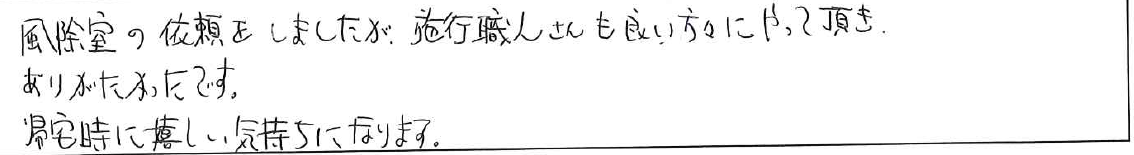 風除室の依頼をしましたが、施行職人さんも良い方々にやって頂き、
ありがたかったです。
帰宅時に嬉しい気持ちになります。